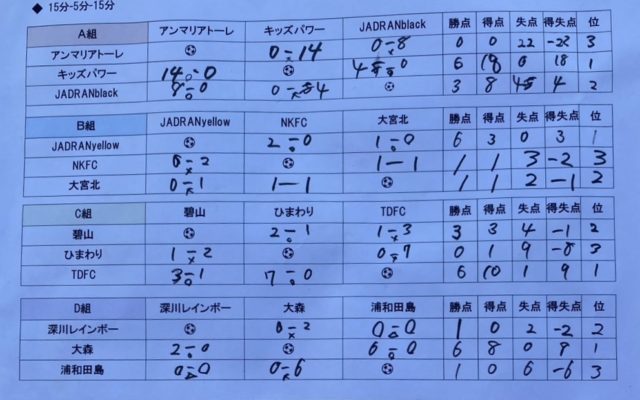 ◆ 15分-5分-15分
A組 アンマリアトーレ キッズパワー JADRANblack 勝点 得点 失点 得失点 位
アンマリアトーレ 0-14 0-8 0 0 22 -22 3
キッズパワー 14-0 4-0 6 18 0 18 1
JADRANblack 8-0 0-4 3 8 4 4 2
B組 JADRANyellow NKFC 大宮北 勝点 得点 失点 得失点 位
JADRANyellow 2-0 1-0 6 3 0 3 1
NKFC 0-2 1-1 1 1 3 -2 3
大宮北 0-1 1-1 1 1 2 -1 2
C組 碧山 ひまわり TDFC 勝点 得点 失点 得失点 位
碧山 2-1 1-3 3 3 4 -1 2
ひまわり 1-2 0-7 0 1 9 -8 3
TDFC 3-1 7-0 6 10 1 9 1
D組 深川レインボー 大森 浦和田島 勝点 得点 失点 得失点 位
深川レインボー 0-2 0-0 1 0 2 -2 2
大森 2-0 6-0 6 8 0 1
浦和田島 0-0 0-6 1 0 6 -6 3